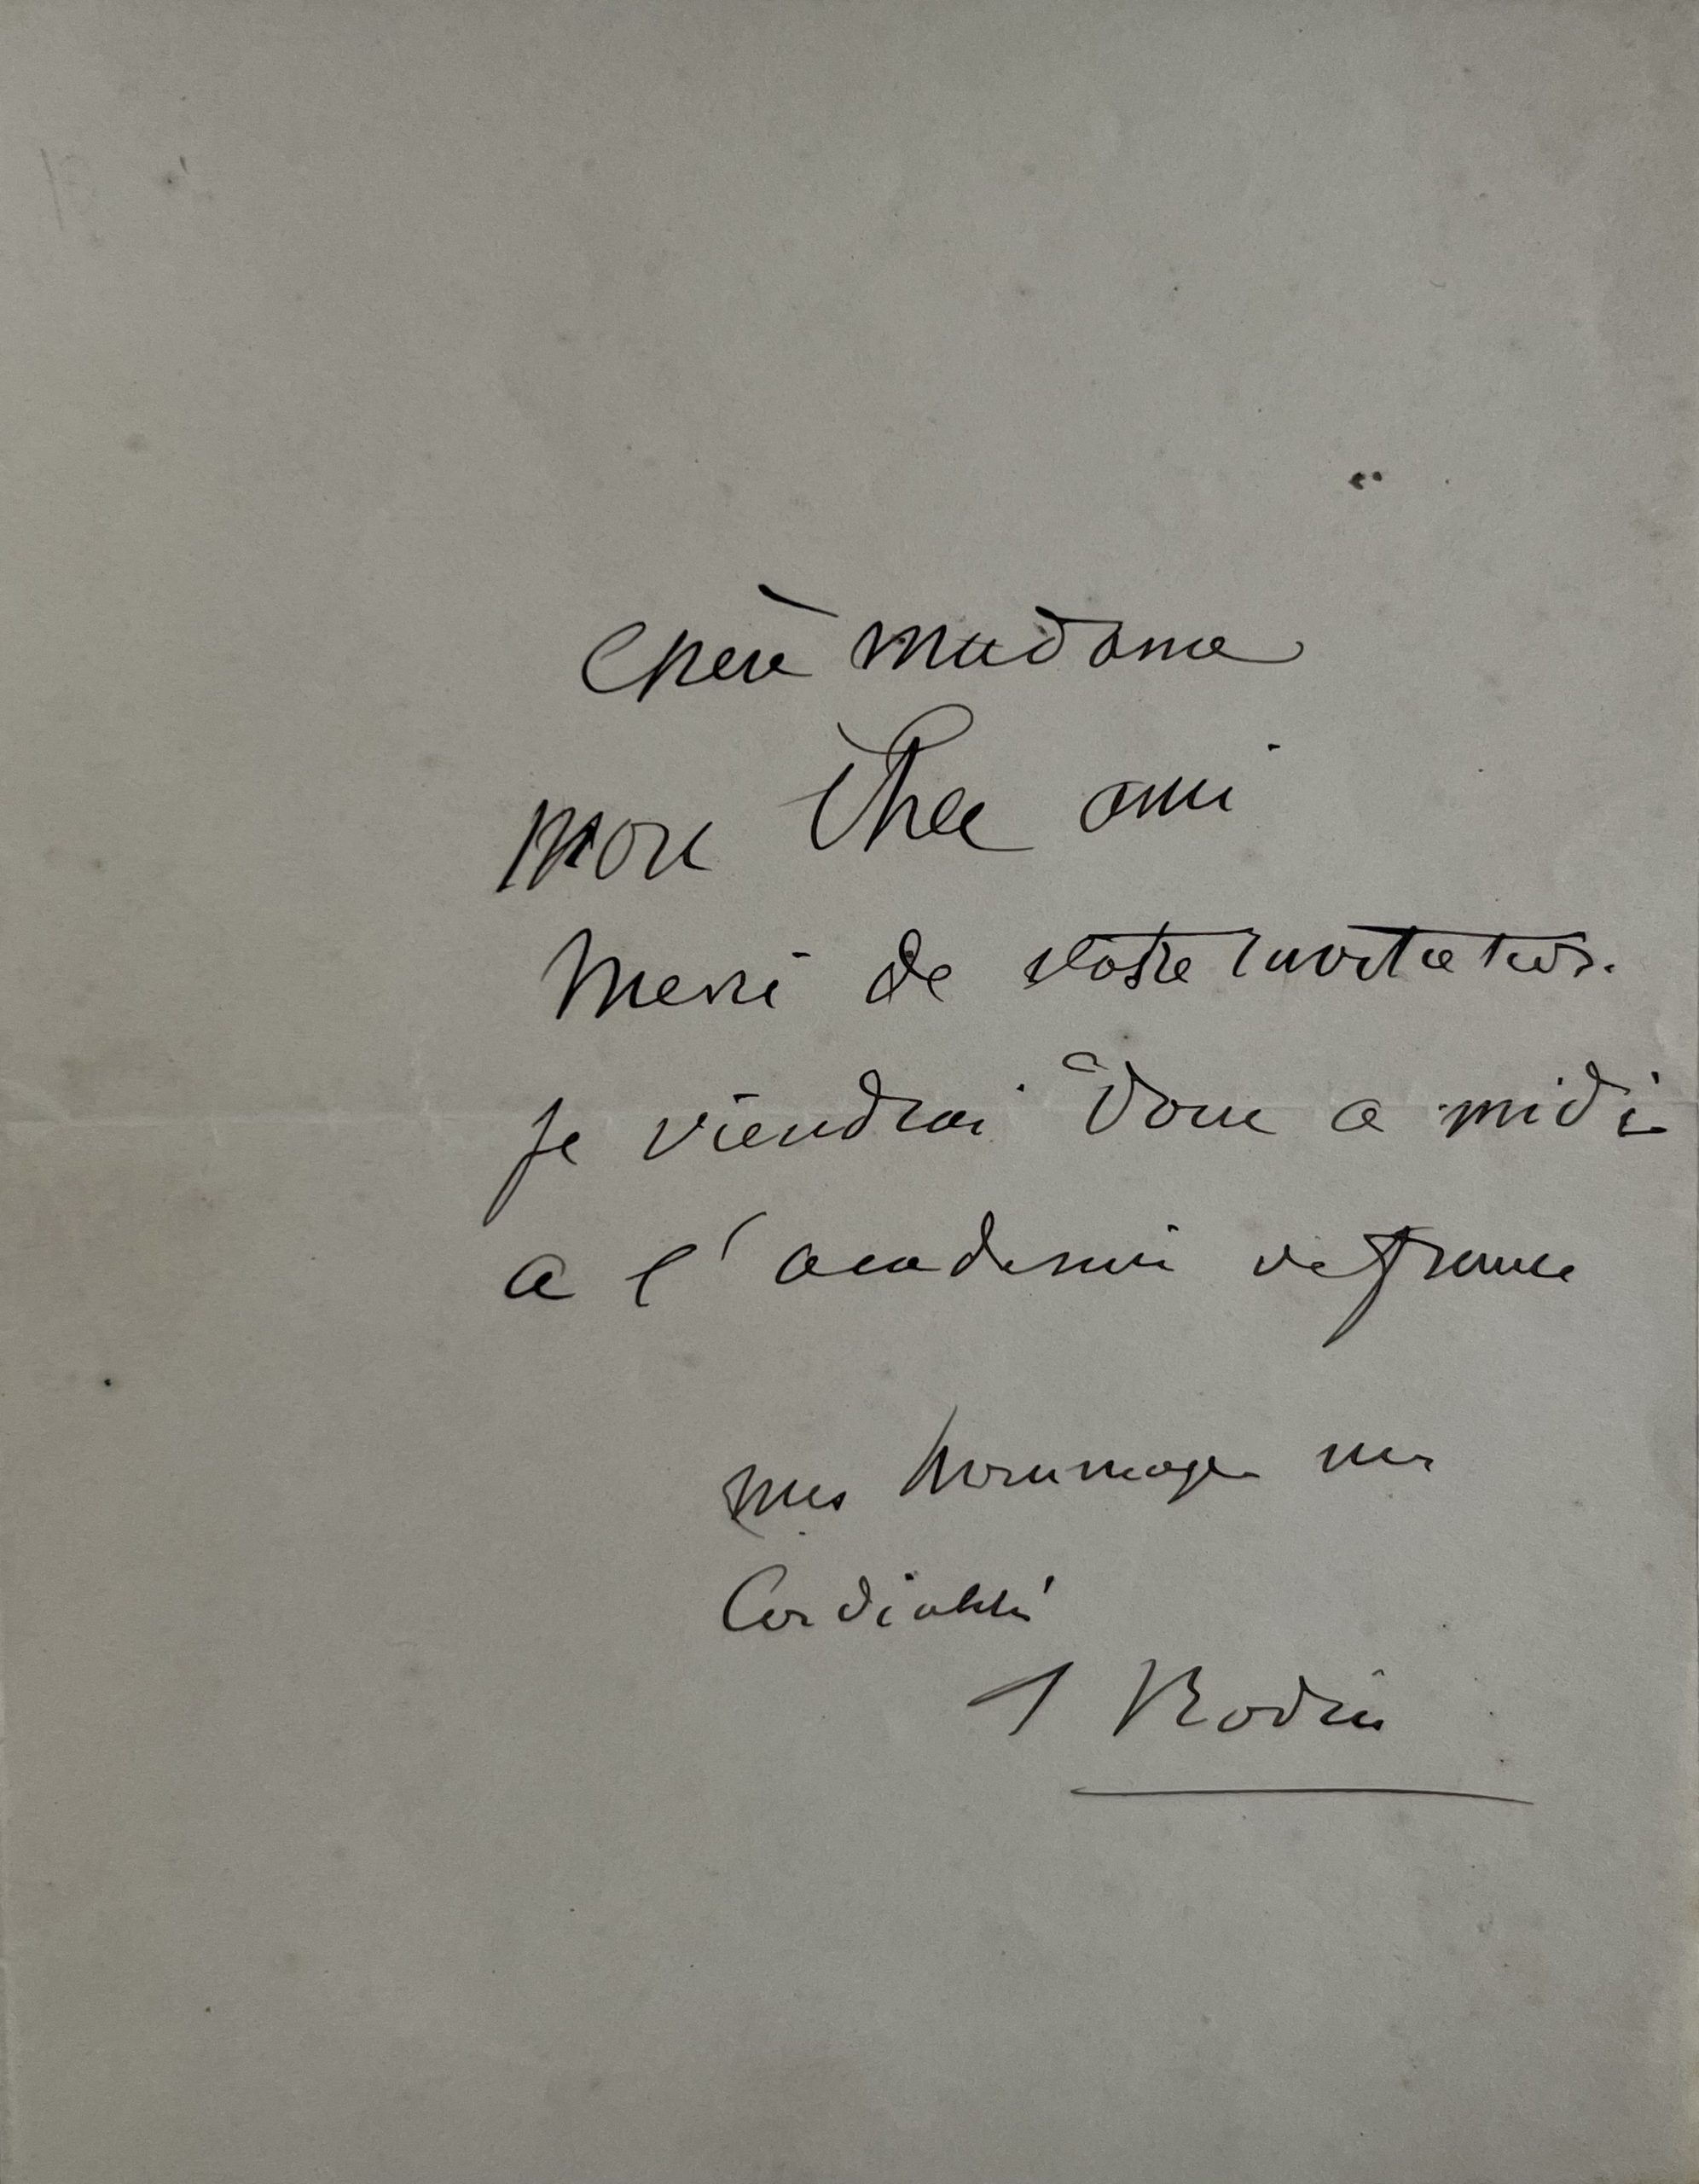 Chère madame
mon cher ami
Merci de votre invitation.
je viendrai donc a midi
a l'academie de france
mes hommages mes
Cordialité
A Rodin